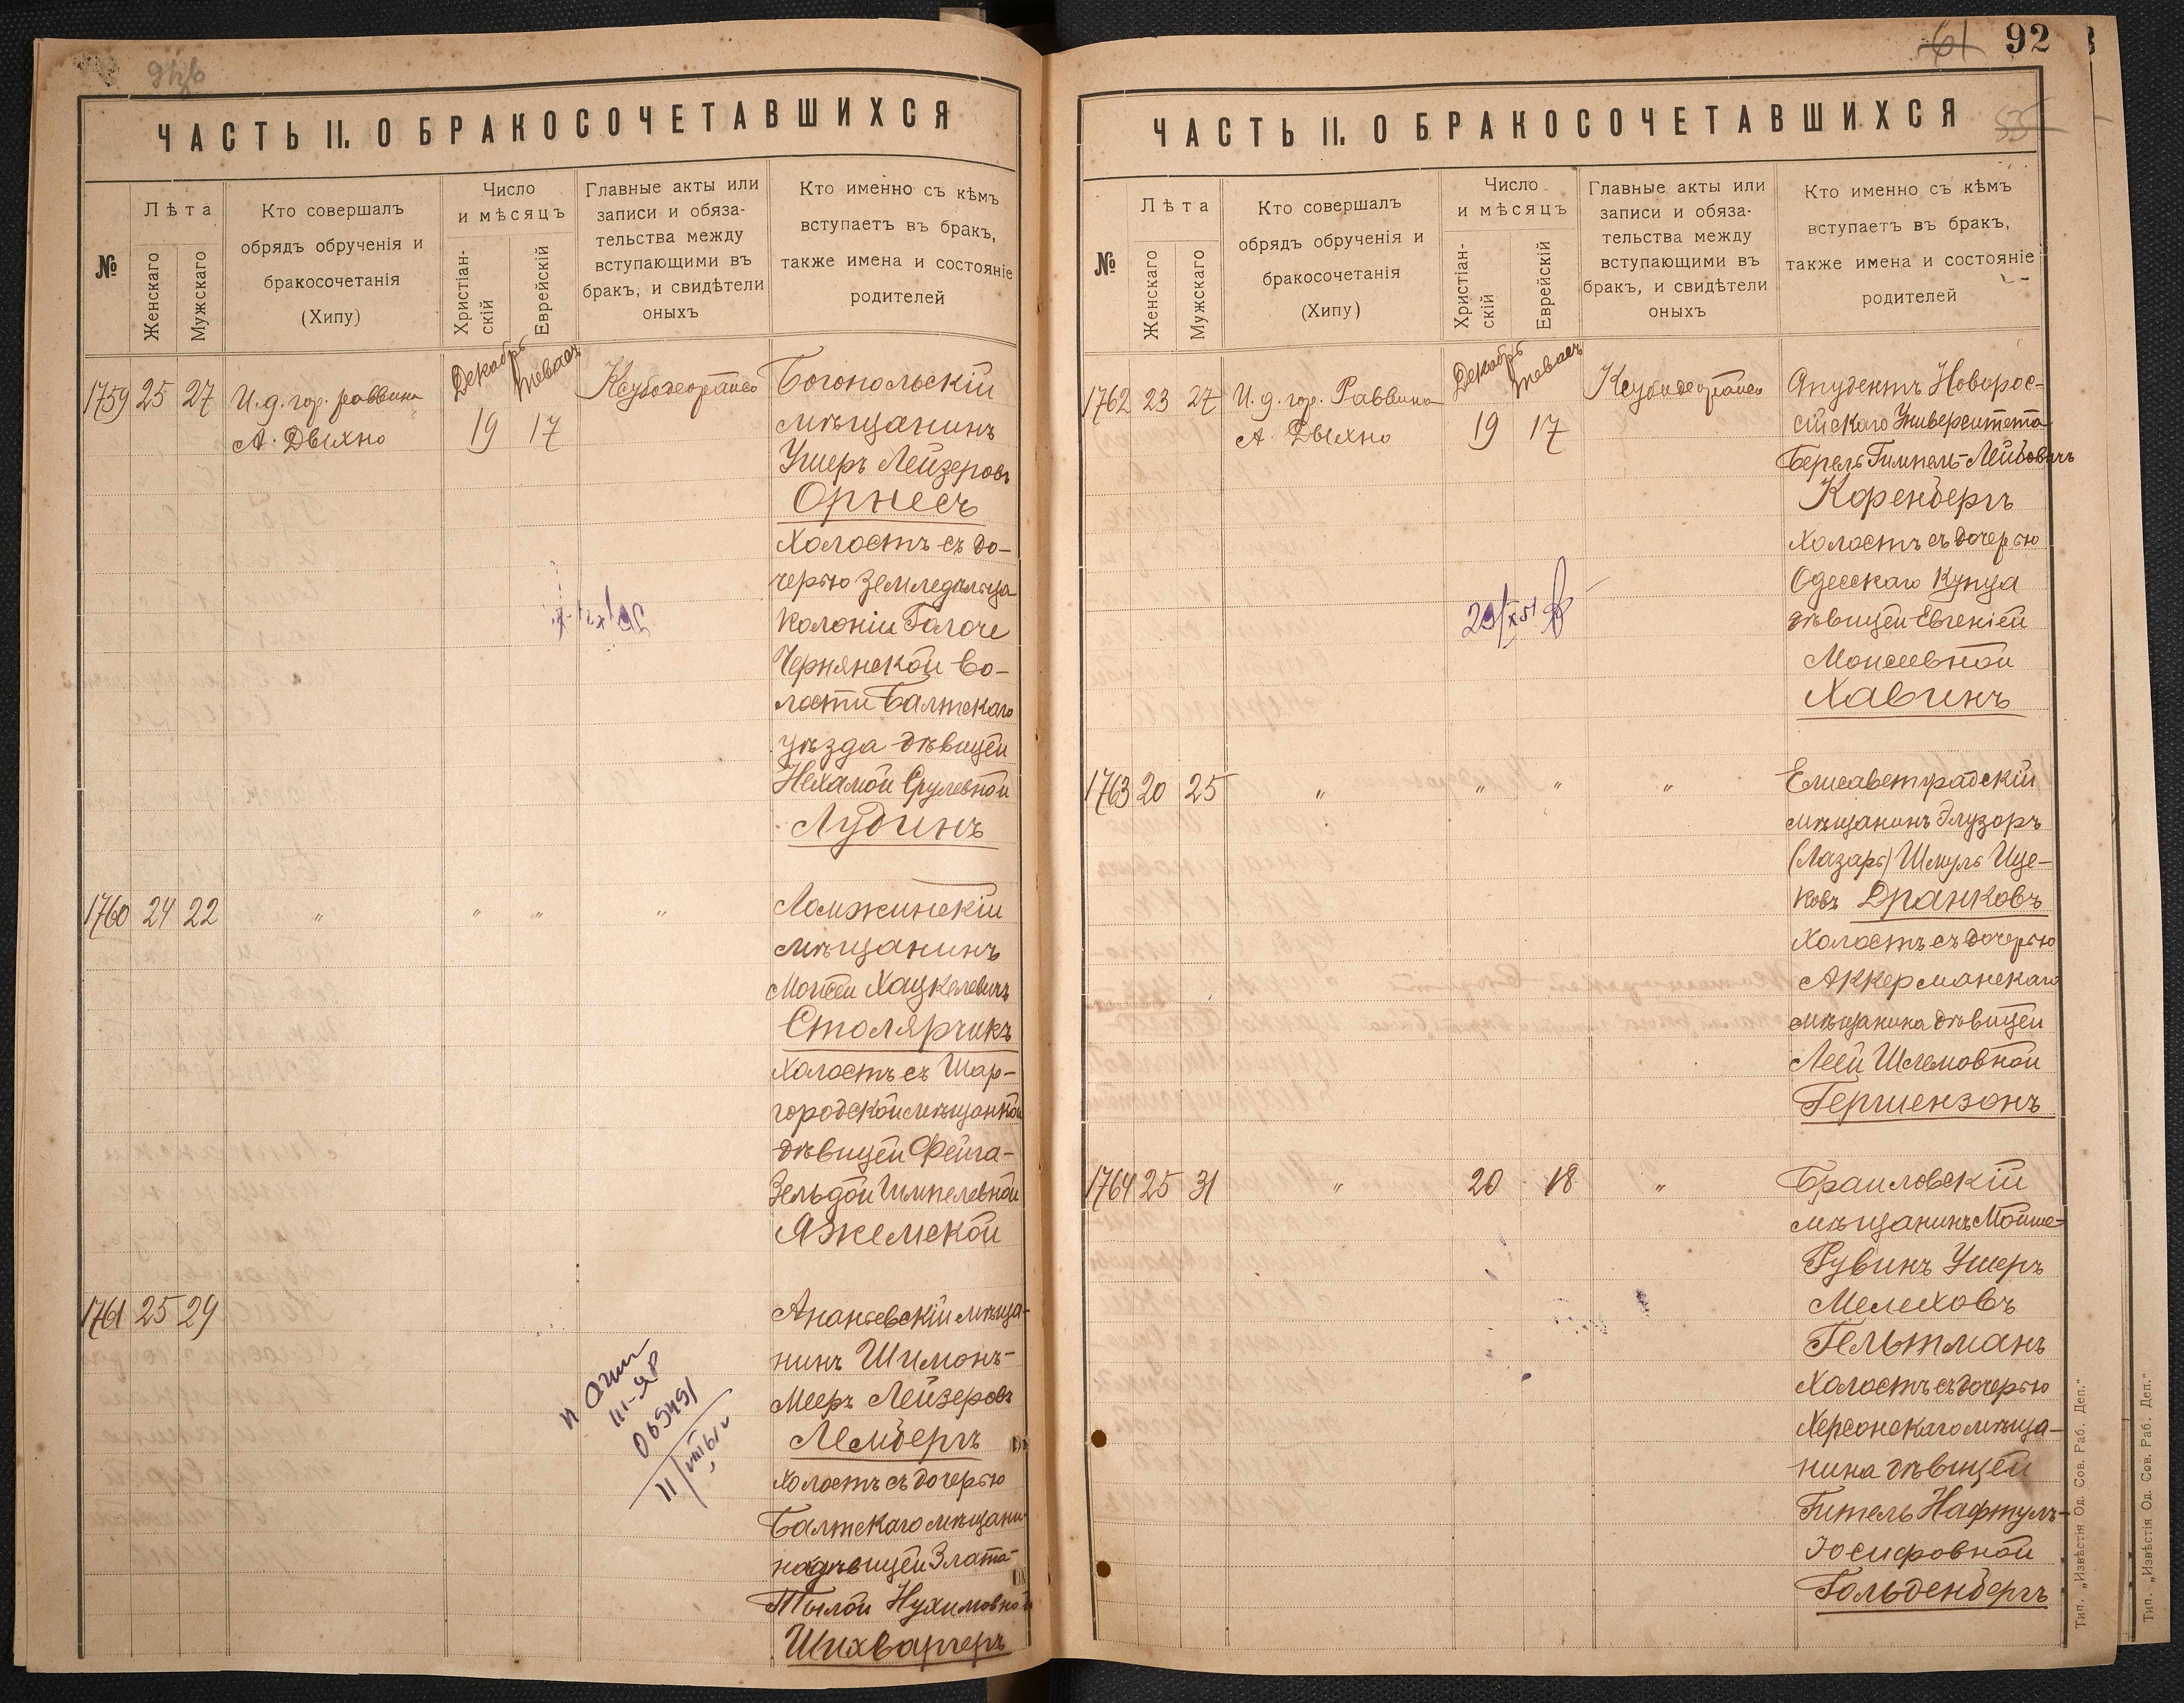 ЧАСТЬ II. О БРАКОСОЧЕТАВШИХСЯ
№
Лѣта
Женскаго
Мужскаго
Кто совершалъ
обрядъ обрученія и
бракосочетанія
(Хипу)
Число
и мѣсяцъ
Христіан-
скій
Еврейскій
Главные акты или
записи и обяза-
тельства между
вступающими въ
бракъ, и свидѣтели
оныхъ
Кто именно съ кѣмъ
вступаетъ въ бракъ,
также имена и состояніе
родителей
1759 25 27
И. д. гор. раввина
А. Дыхно
Декабрь
Тевесъ
19 17
Богопольскій
мѣщанинъ
Ушеръ Лейзеровъ
Орнесъ
холостъ съ до-
черью земледѣльца
колоніи Голоче
Чернянской во-
лости Балтскаго
уѣзда дѣвицей
Нехамой Срулевной
Лудинъ
1760 24 22 " " " "
Ломжинскій
мѣщанинъ
Моисей Хацкелевичъ
Столярчикъ
холостъ съ Шар-
городской мѣщанкой
дѣвицей Фейга-
Зельдой Шмилевной
Яжемской
1761 25 29
Ананьевскій мѣща-
нинъ Шимонъ-
Мееръ Лейзеровъ
Лембергъ
холостъ съ дочерью
Балтскаго мѣщани-
на дѣвицей Злата-
Тылой Нухимовной
Шихвергеръ
61 92
ЧАСТЬ II. О БРАКОСОЧЕТАВШИХСЯ
535
№
Лѣта
Женскаго
Мужскаго
Кто совершалъ
обрядъ обрученія и
бракосочетанія
(Хипу)
Число
и мѣсяцъ
Христіан-
скій
Еврейскій
Главные акты или
записи и обяза-
тельства между
вступающими въ
бракъ, и свидѣтели
оныхъ
Кто именно съ кѣмъ
вступаетъ въ бракъ,
также имена и состояніе
родителей
1762 23 27
И. д. гор. Раввина
А. Дыхно
Декабрь
Тевесъ
19 17
Студентъ Новорос-
сійскаго Университета
Берель Гимпель-Лейбовичъ
Коренбергъ
холостъ съ дочерью
Одесскаго Купца
дѣвицей Евгеніей
Моисеевной
Хавинъ
1763 20 25 " " " "
Елисаветградскій
мѣщанинъ Элузоръ
(Лазарь) Шмуль Ице-
ковъ Дранковъ
холостъ съ дочерью
Аккерманскаго
мѣщанина дѣвицей
Леей Шлемовной
Гершензонъ
1764 25 31 " 20 18 "
Браиловскій
мѣщанинъ Мойше-
Рувинъ Ушеръ
Мелеховъ
Гельтманъ
холостъ съ дочерью
Херсонскаго мѣща-
нина дѣвицей
Гитель Нафтулъ-
Іосифовной
Гольденбергъ
Тип. „Извѣстія Од. Сов. Раб. Деп."
Тип. „Извѣстія Од. Сов. Раб. Деп."